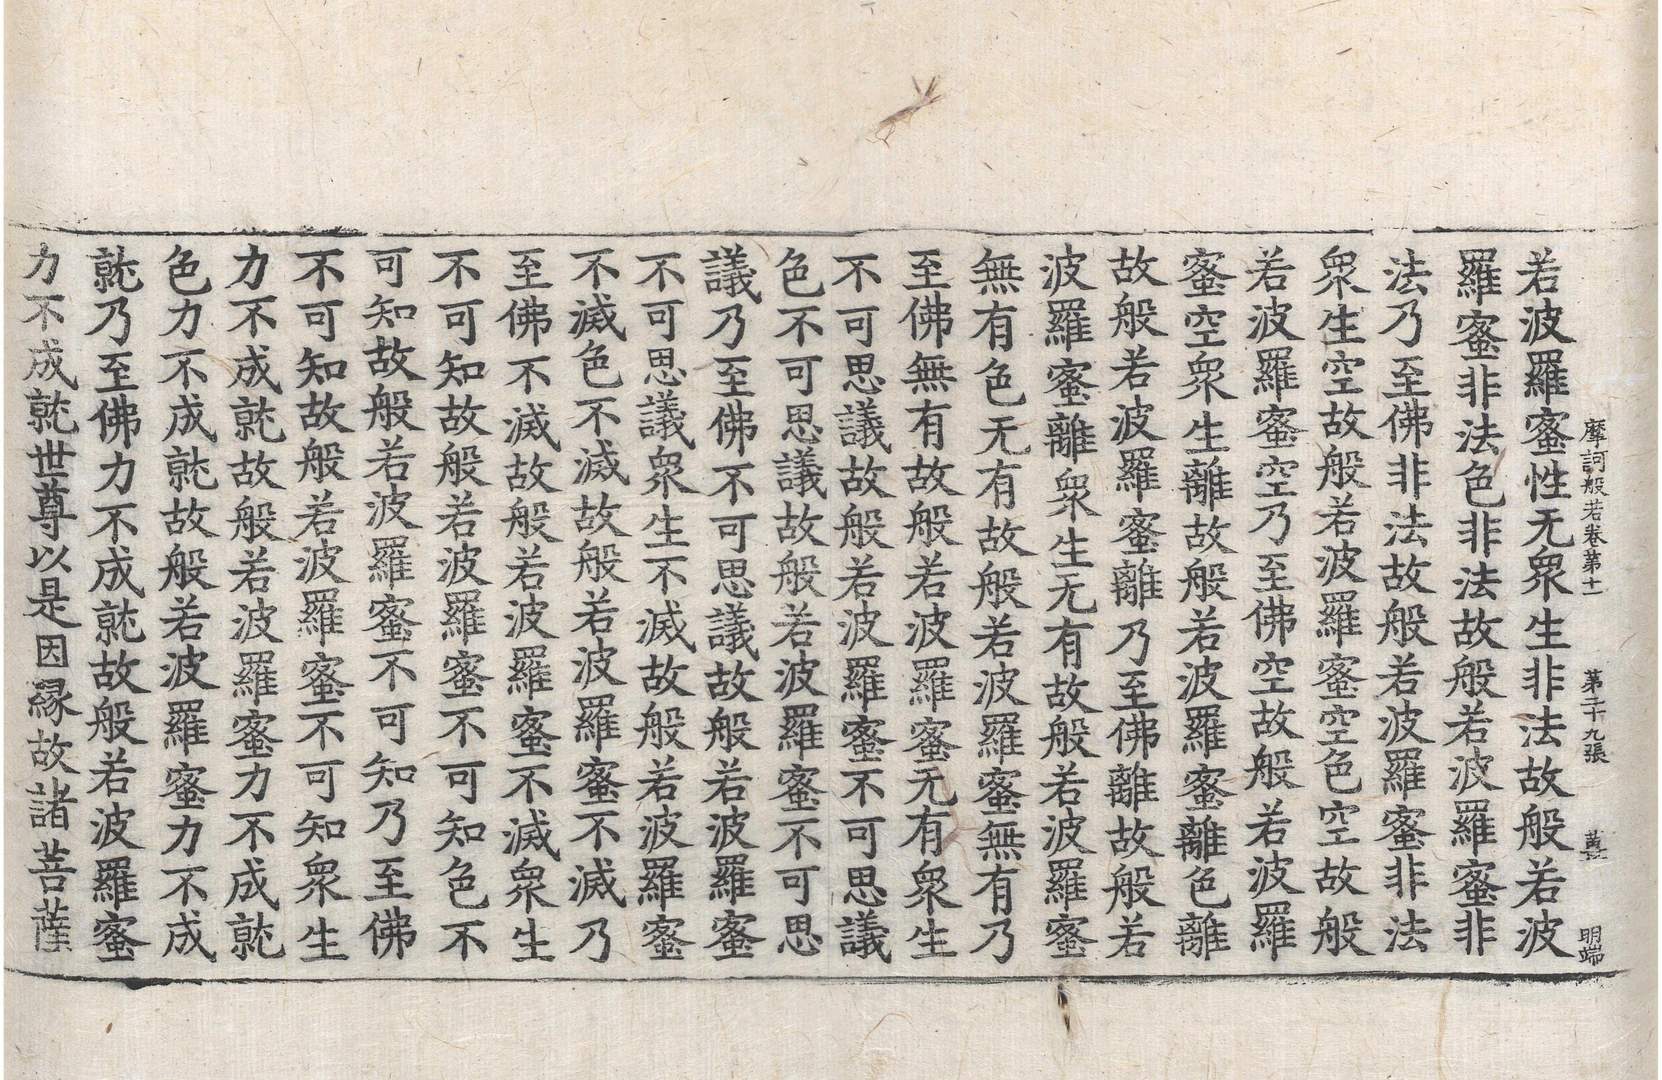 摩訶般若卷第十一 第二十九張 薑 明端
若波羅蜜性无衆生非法故般若波
羅蜜非法色非法故般若波羅蜜非
法乃至佛非法故般若波羅蜜非法
衆生空故般若波羅蜜空色空故般
若波羅蜜空乃至佛空故般若波羅
蜜空衆生離故般若波羅蜜離色離
故般若波羅蜜離乃至佛離故般若
波羅蜜離衆生无有故般若波羅蜜
無有色无有故般若波羅蜜無有乃
至佛無有故般若波羅蜜无有衆生
不可思議故般若波羅蜜不可思議
色不可思議故般若波羅蜜不可思
議乃至佛不可思議故般若波羅蜜
不可思議衆生不滅故般若波羅蜜
不滅色不滅故般若波羅蜜不滅乃
至佛不滅故般若波羅蜜不滅衆生
不可知故般若波羅蜜不可知色不
可知故般若波羅蜜不可知乃至佛
不可知故般若波羅蜜不可知衆生
力不成就故般若波羅蜜力不成就
色力不成就故般若波羅蜜力不成
就乃至佛力不成就故般若波羅蜜
力不成就世尊以是因縁故諸菩薩